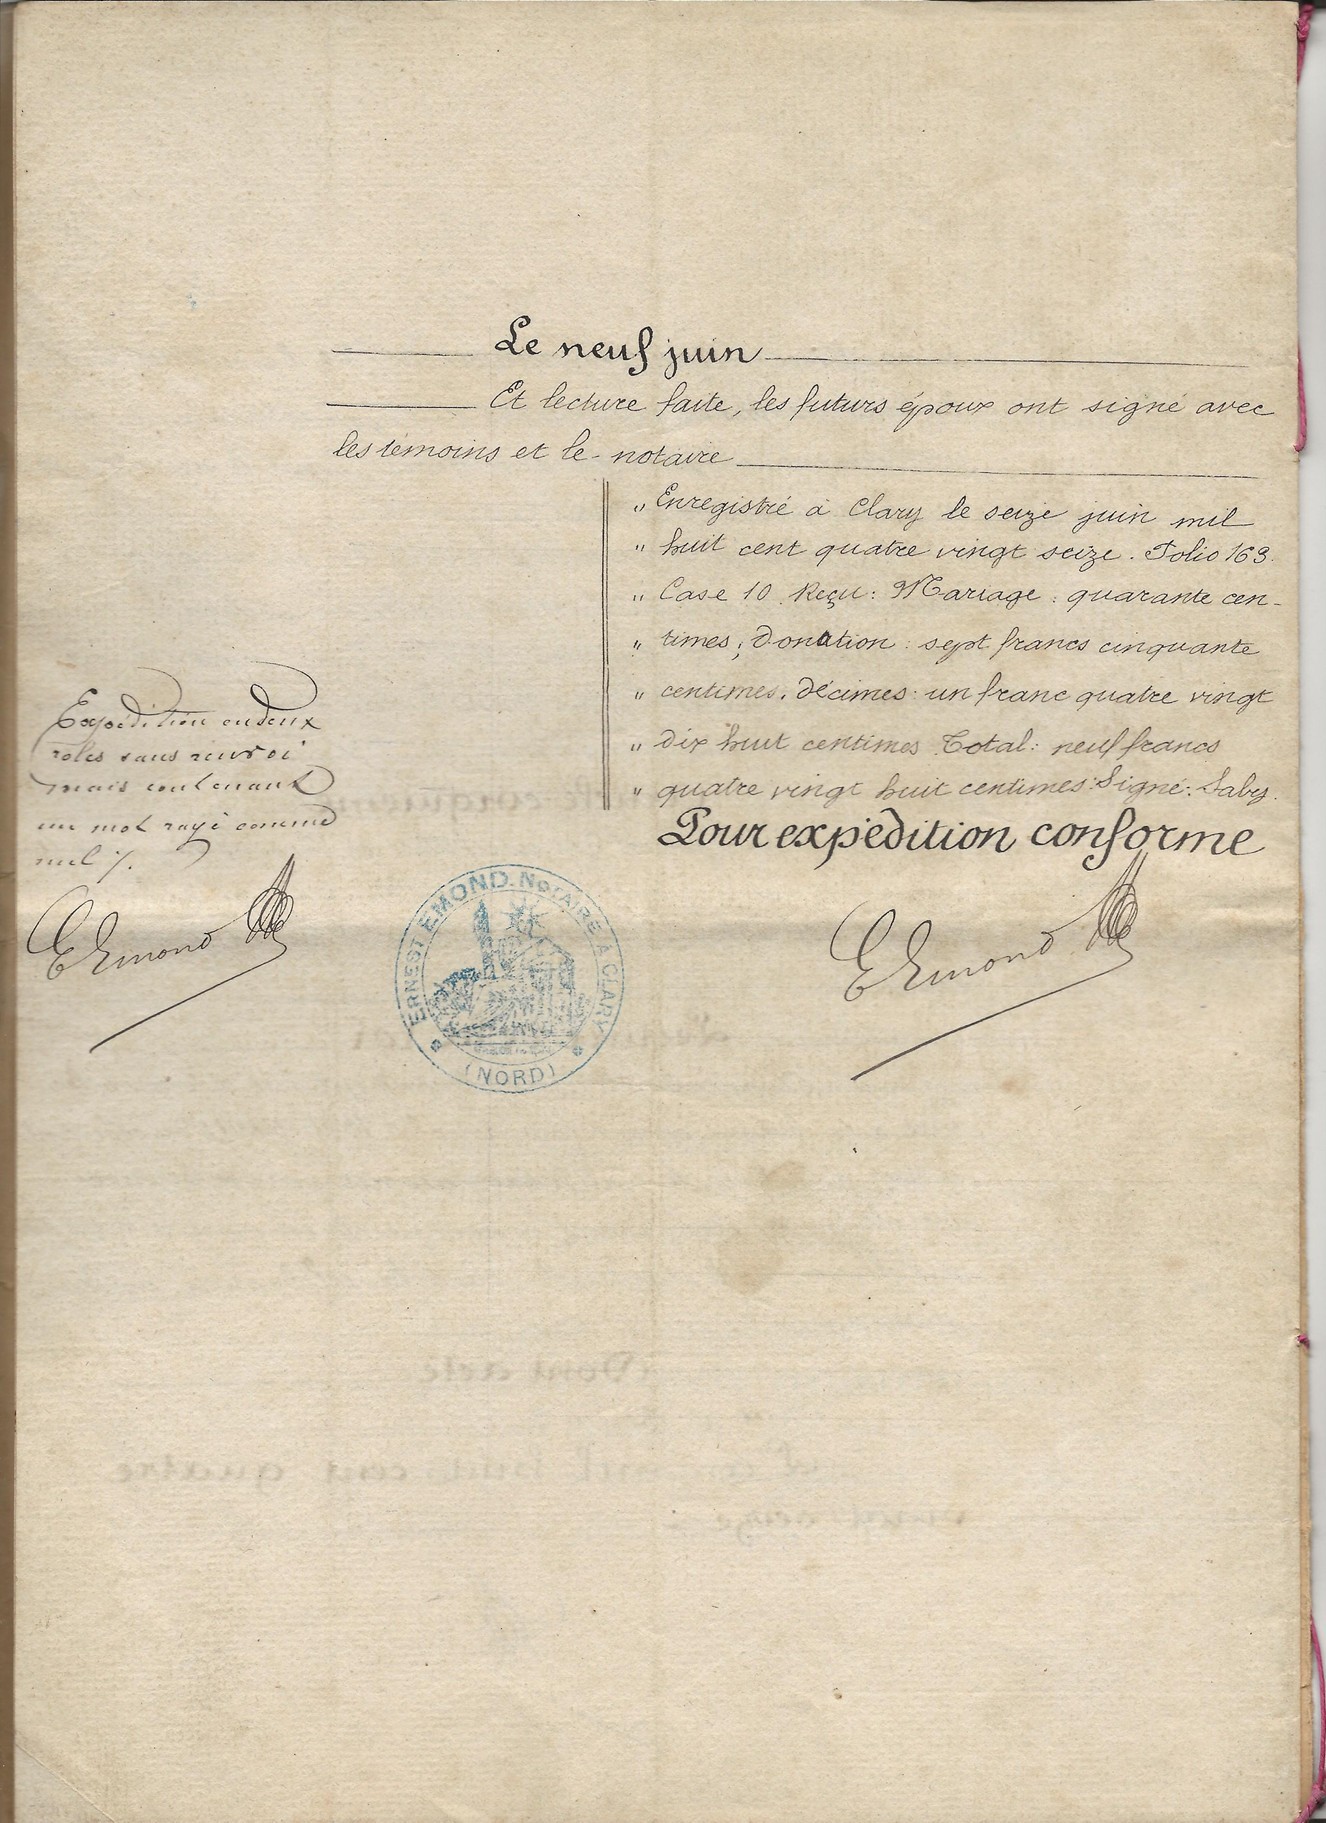 Le neuf juin
Et lecture faite, les futurs époux ont signé avec
les témoins et le notaire
„ Enregistré à Clary le seize juin mil
„ huit cent quatre vingt seize. Folio 163.
„ Case 10 Reçu: Mariage: quarante cen-
„ times; Donation: sept francs cinquante
„ centimes. Décimes: un franc quatre vingt
„ dix huit centimes Total: neuf francs
„ quatre vingt huit centimes. Signé: Saby.
Pour expédition conforme
Expédition en deux
roles sans renvoi
mais contenant
un mot rayé comme
nul %.
E Emond
ERNEST EMOND. NOTAIRE À CLARY
(NORD)
E Emond